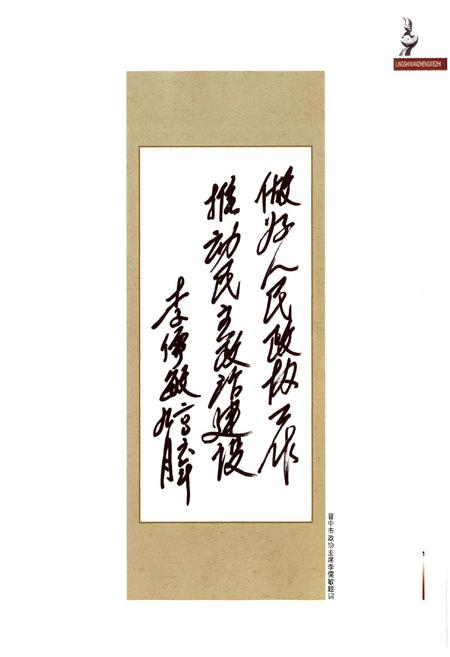 LINGSHIXIANZHENGXIEZHI
做好人民政协工作
推动民主政治建设
李儒敏
九月
晋中市政协主席李儒敏题词
1